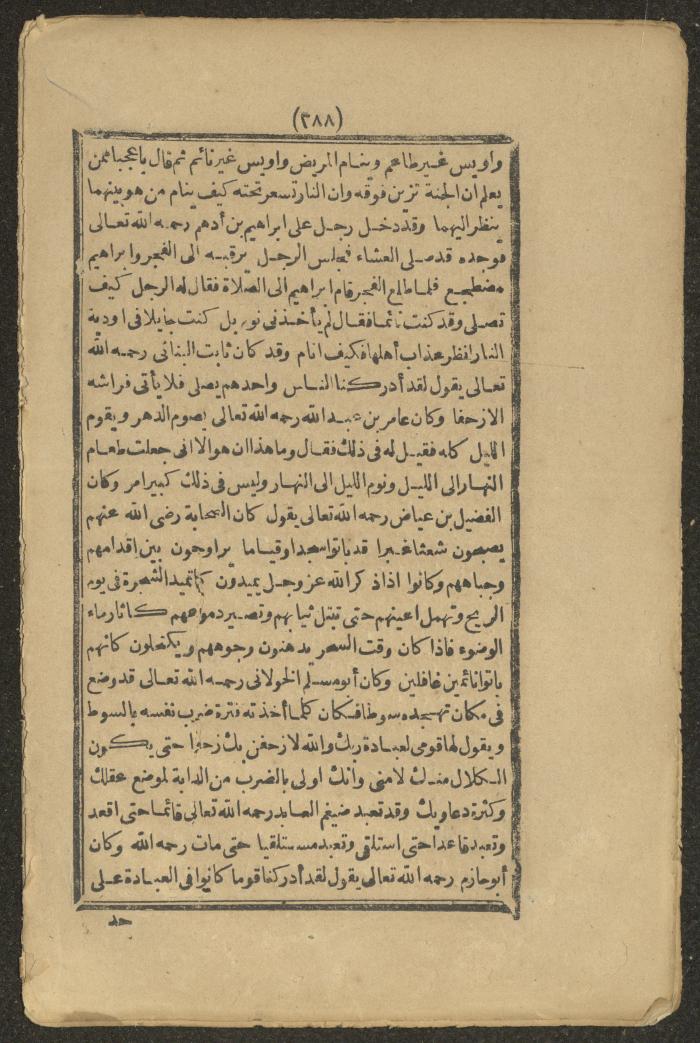 (٣٨٨)
واويس غير طاعم وينام المريض واويس غير نائم ثم قال يا عجبا ممن
يعلم ان الجنة تزين فوقه وان النار تسعر تحته كيف ينام من هو بينهما
ينظر اليهما وقد دخل رجل على ابراهيم بن أدهم رحمه الله تعالى
فوجده قد صلى العشاء فجلس الرجل يرقبه الى الفجر وابراهيم
مضطجع فلما طلع الفجر قام ابراهيم الى الصلاة فقال له الرجل كيف
تصلى وقد كنت نائما فقال لم يأخذنى نوم بل كنت جايلا فى اودية
النار انظر عذاب أهلها فكيف انام وقد كان ثابت البنانى رحمه الله
تعالى يقول لقد أدركنا الناس واحدهم يصلى فلا يأتى فراشه
الازحفا وكان عامر بن عبد الله رحمه الله تعالى يصوم الدهر ويقوم
الليل كله فقيل له فى ذلك فقال وما هذا ان هو الا انى جعلت طعام
النهار الى الليل ونوم الليل الى النهار وليس فى ذلك كبير امر وكان
الفضيل بن عياض رحمه الله تعالى يقول كان الصحابة رضى الله عنهم
يصبحون شعثا غبرا قد باتوا سجدا وقياما يراوحون بين اقدامهم
وجباههم وكانوا اذا ذكر الله عز وجل يميدون كما تميد الشجرة فى يوم
الريح وتهمل اعينهم حتى تبتل ثيابهم وتصير دموعهم كاثار ماء
الوضوء فاذا كان وقت السحر يدهنون وجوههم ويكتحلون كانهم
باتوا نائمين غافلين وكان أبو مسلم الخولانى رحمه الله تعالى قد وضع
فى مكان تهجده سوطا فكان كلما أخذته فترة ضرب نفسه بالسوط
ويقول لها قومى لعبادة ربك والله لازحفن بك زحفا حتى يكون
الكلال منك لا منى وانك اولى بالضرب من الدابة لموضع عقلك
وكثرة دعاويك وقد تعبد ضيغم العابد رحمه الله تعالى قائما حتى اقعد
وتعبد قاعدا حتى استلقى وتعبد مستلقيا حتى مات رحمه الله وكان
أبو حازم رحمه الله تعالى يقول لقد أدركنا قوما كانوا فى العبادة على
حد